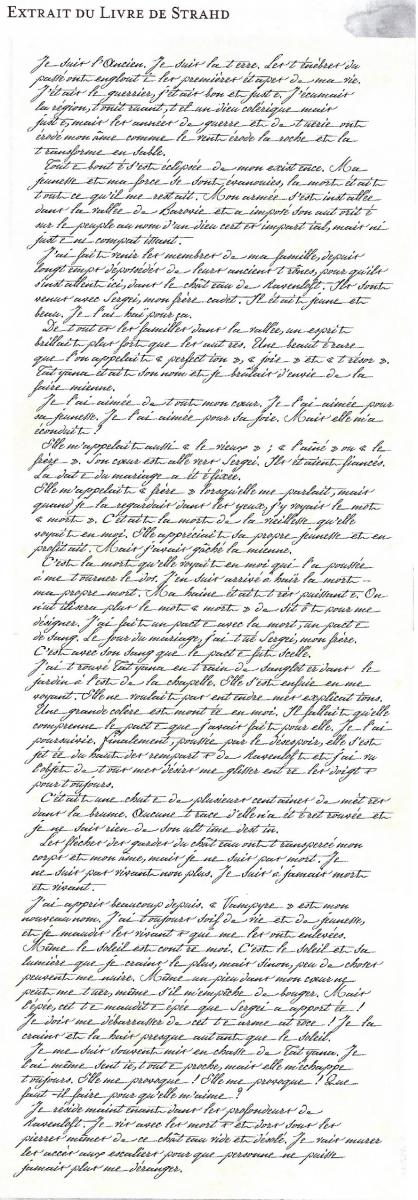 Extrait du Livre de Strahd
Je suis l'Ancien. Je suis la terre. Les ténèbres du
passé ont englouti les premières étapes de ma vie.
J'étais le guerrier, j'étais bon et juste. J'écumais
la région, tonitruant, tel un dieu colérique mais
juste, mais les années de guerre et de tuerie ont
érodé mon âme comme le vent érode la roche et la
transforme en sable.
Toute bonté s'est éclipsée de mon existence. Ma
jeunesse et ma force se sont évanouies, la mort était
tout ce qu'il me restait. Mon armée s'est installée
dans la vallée de Barovie et a imposé son autorité
sur le peuple au nom d'un dieu certes impartial, mais ni
juste ni compatissant.
J'ai fait venir les membres de ma famille, depuis
longtemps dépossédés de leurs anciens trônes, pour qu'ils
s'installent ici, dans le château de Ravenloft. Ils sont
venus avec Sergei, mon frère cadet. Il était jeune et
beau. Je l'ai haï pour ça.
De toutes les familles dans la vallée, un esprit
brillait plus fort que les autres. Une beauté rare
que l'on appelait « perfection », « joie » et « trésor ».
Tatyana était son nom et je brûlais d'envie de la
faire mienne.
Je l'ai aimée de tout mon cœur. Je l'ai aimée pour
sa jeunesse. Je l'ai aimée pour sa joie. Mais elle m'a
éconduit !
Elle m'appelait aussi « le vieux » ; « l'aîné » ou « le
frère ». Son cœur est allé vers Sergei. Ils étaient fiancés.
La date du mariage a été fixée.
Elle m'appelait « frère » lorsqu'elle me parlait, mais
quand je la regardais dans les yeux, j'y voyais le mot
« mort ». C'était la mort de la vieillesse qu'elle
voyait en moi. Elle appréciait sa propre jeunesse et en
profitait. Mais j'avais gâché la mienne.
C'est la mort qu'elle voyait en moi qui l'a poussée
à me tourner le dos. J'en suis arrivé à haïr la mort --
ma propre mort. Ma haine était très puissante. On
n'utilisera plus le mot « mort » de sitôt pour me
désigner. J'ai fait un pacte avec la mort, un pacte
de sang. Le jour du mariage, j'ai tué Sergei, mon frère.
C'est avec son sang que le pacte fut scellé.
J'ai trouvé Tatyana en train de sangloter dans le
jardin à l'est de la chapelle. Elle s'est enfuie en me
voyant. Elle ne voulait pas entendre mes explications.
Une grande colère est montée en moi. Il fallait qu'elle
comprenne le pacte que j'avais fait pour elle. Je l'ai
poursuivie. Finalement, poussée par le désespoir, elle s'est
jetée du haut des remparts de Ravenloft et j'ai vu
l'objet de tous mes désirs me glisser entre les doigts
pour toujours.
C'était une chute de plusieurs centaines de mètres
dans la brume. Aucune trace d'elle n'a été retrouvée et
je ne sais rien de son ultime destin.
Les flèches des gardes du château ont transpercé mon
corps et mon âme, mais je ne suis pas mort. Je
ne suis pas vivant non plus. Je suis à jamais mort
et vivant.
J'ai appris beaucoup depuis. « Vampyre » est mon
nouveau nom. J'ai toujours soif de vie et de jeunesse,
et je maudis les vivants que me les ont enlevées.
Même le Soleil est contre moi. C'est le Soleil et sa
lumière que je crains le plus, mais sinon, peu de choses
peuvent me nuire. Même un pieu dans mon cœur ne
peut me tuer, même s'il m'empêche de bouger. Mais
l'épée, cette maudite épée que Sergei a apporté !
Je dois me débarrasser de cette arme atroce ! Je la
crains et la hais presque autant que le Soleil.
Je me suis souvent mis en chasse de Tatyana. Je
l'ai même sentie, tout proche, mais elle m'échappe
toujours. Elle me provoque ! Elle me provoque ! Que
faut-il faire pour qu'elle m'aime ?
Je réside maintenant dans les profondeurs de
Ravenloft. Je vis avec les morts et dors sous les
pierres mêmes de ce château vide et désolé. Je vais murer
les accès aux escaliers pour que personne ne puisse
jamais plus me déranger.